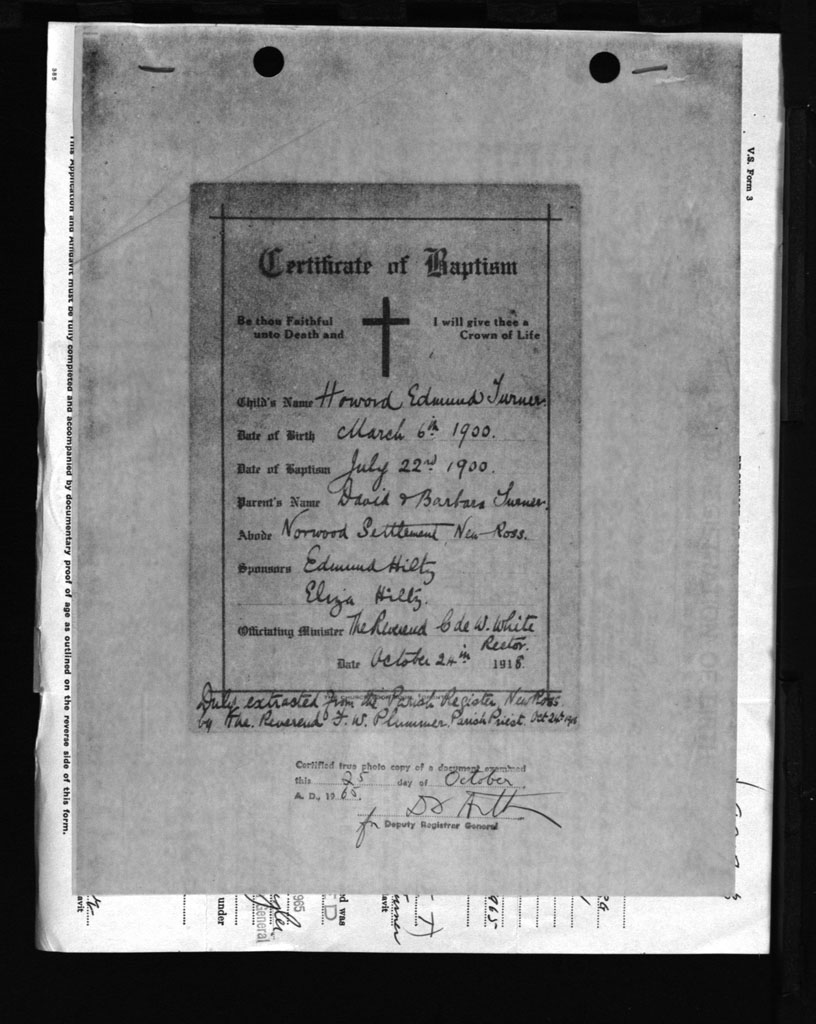 385
V.S. Form 3
This Application and Affidavit must be fully completed and accompanied by documentary proof of age as outlined on the reverse side of this form.
Certificate of Baptism
Be thou Faithful unto Death and
I will give thee a Crown of Life
Child's Name Howard Edmund Turner.
Date of Birth March 6th 1900.
Date of Baptism July 22nd 1900.
Parent's Name David & Barbara Turner.
Abode Norwood Settlement, New-Ross.
Sponsors Edmund Hiltz
Eliza Hiltz.
Officiating Minister The Reverend C de W. White
Rector.
Date October 24th 1916.
Duly extracted from the Parish Register, New Ross
by the Reverend F. W. Plummer, Parish Priest. Oct 24th 1916
Certified true photo copy of a document examined
this 25 day of October
A. D., 1965.
for Deputy Registrar General
avit
under
General
965
ed was
avit
Turner
1965